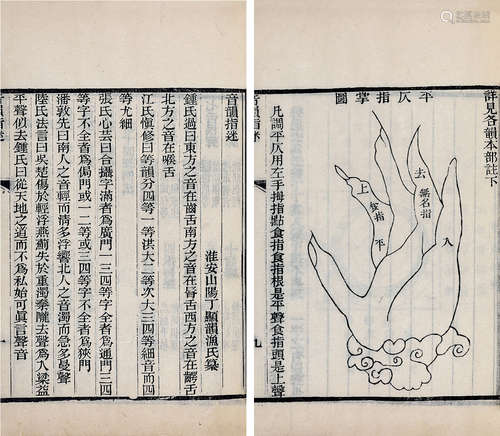 詳見各韻本部註下
平仄指掌圖
去
無名指
入
上
食指
平
凡調平仄用左手拇指勘食指食指根是平聲食指頭是上聲
音韻指迷
九
音韻指迷
淮安山陽丁顯韻漁氏纂
鍾氏過曰東方之音在齒舌南方之音在脣舌西方之音在齶舌
北方之音在喉舌
江氏慎修曰等韻分四等一等洪大二等次大三四等細音而四
等尤細
張氏心芸曰合攝字滿者爲廣門一三四等字全者爲通門三四
等字不全者爲偏門或一二等或三四等字不全者爲狹門
潘敦先曰南人之音輕而清多浮響北人之音濁而急多曼聲
陸氏法言曰吳楚傷於輕浮燕薊失於重濁秦隴去聲爲入梁益
平聲似去鍾氏曰從天地之道而不爲私始可眞言聲音
音韻指迷